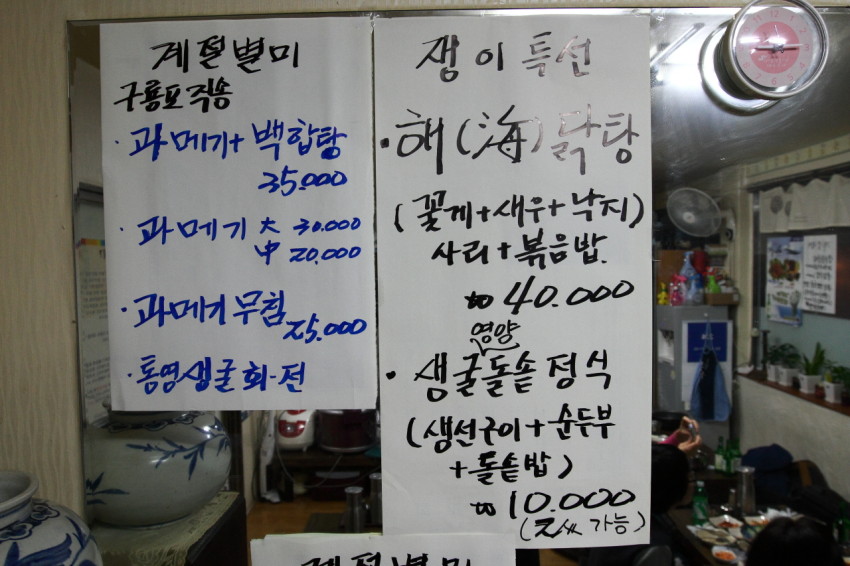 계절별미
구룡포직송
· 과메기+백합탕
35.000
· 과메기 大 30.000
中 20.000
· 과메기무침
25.000
· 통영생굴회·전
쟁이특선
· 해(海)닭탕
(꽃게+새우+낙지)
사리+볶음밥.
₩ 40.000
영양
· 생굴돌솥정식
(생선구이+순두부
+돌솥밥)
₩ 10.000
가능)
계절별미